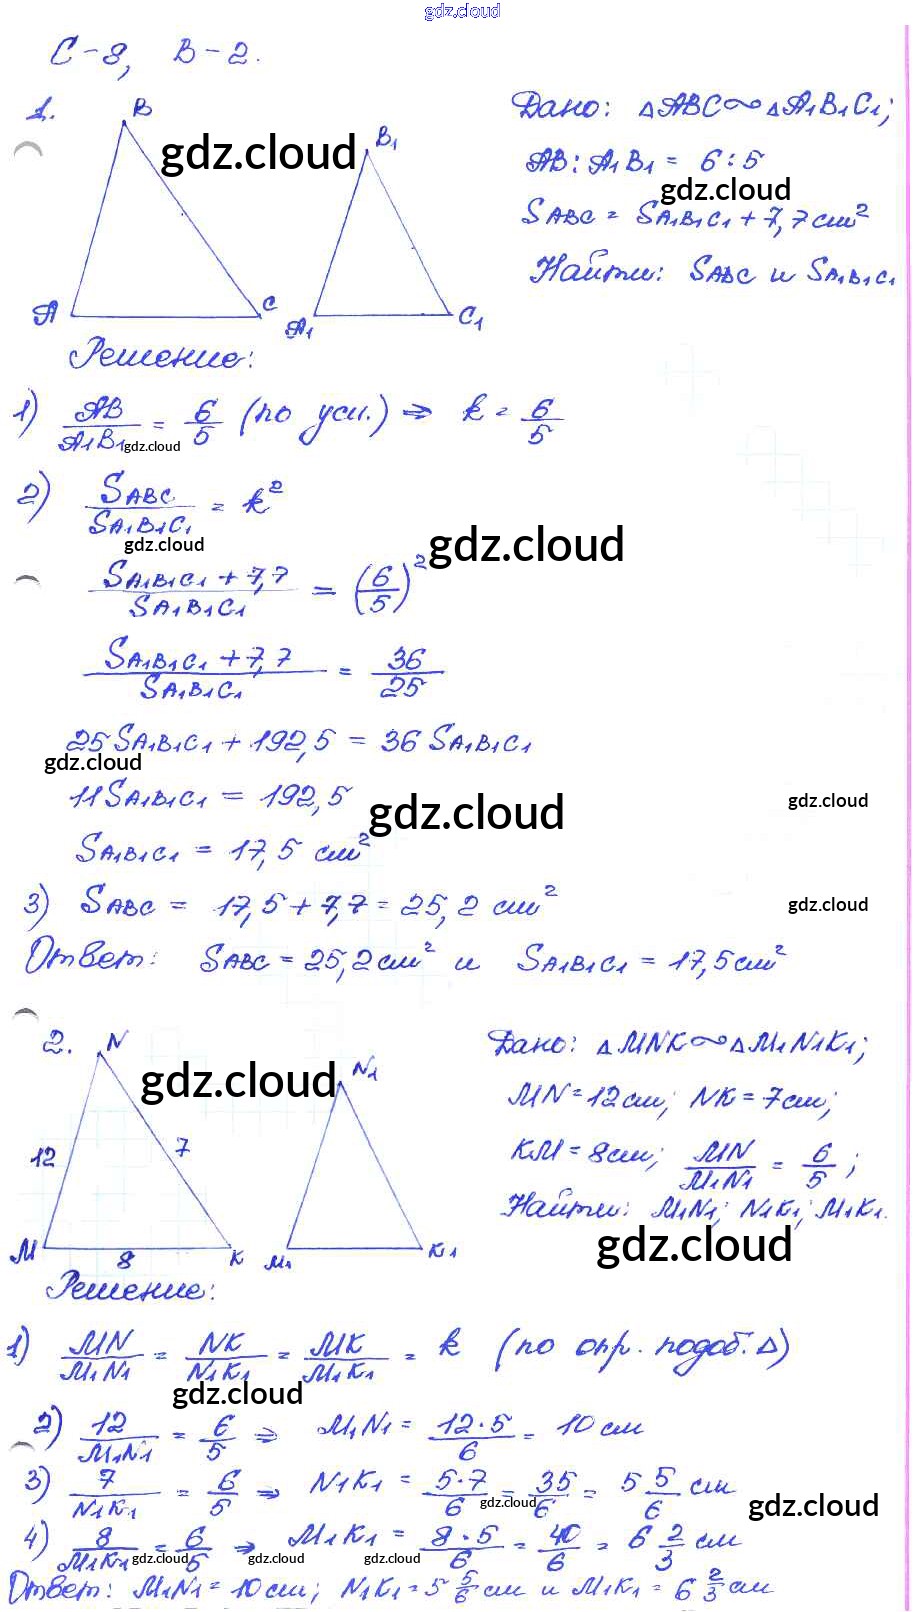 gdz.cloud
С-8, В-2.
1. B B₁ A C A₁ C₁
gdz.cloud
Дано: △ABC∾△A₁B₁C₁;
AB:A₁B₁ = 6:5
gdz.cloud
S_ABC = S_A₁B₁C₁ + 7,7 см²
Найти: S_ABC и S_A₁B₁C₁
Решение:
1) AB/A₁B₁ = 6/5 (по усл.) ⇒ k = 6/5
gdz.cloud
2) S_ABC/S_A₁B₁C₁ = k²
gdz.cloud gdz.cloud
(S_A₁B₁C₁ + 7,7)/S_A₁B₁C₁ = (6/5)²
(S_A₁B₁C₁ + 7,7)/S_A₁B₁C₁ = 36/25
25 S_A₁B₁C₁ + 192,5 = 36 S_A₁B₁C₁
gdz.cloud
11 S_A₁B₁C₁ = 192,5
gdz.cloud gdz.cloud
S_A₁B₁C₁ = 17,5 см²
3) S_ABC = 17,5 + 7,7 = 25,2 см²
gdz.cloud
Ответ: S_ABC = 25,2 см² и S_A₁B₁C₁ = 17,5 см²
2. N N₁ 12 7 M 8 K M₁ K₁
gdz.cloud
Дано: △MNK∾△M₁N₁K₁;
MN = 12 см; NK = 7 см;
KM = 8 см; MN/M₁N₁ = 6/5;
Найти: M₁N₁; N₁K₁; M₁K₁.
gdz.cloud
Решение:
1) MN/M₁N₁ = NK/N₁K₁ = MK/M₁K₁ = k (по опр. подоб. △)
gdz.cloud
2) 12/M₁N₁ = 6/5 ⇒ M₁N₁ = 12·5/6 = 10 см
3) 7/N₁K₁ = 6/5 ⇒ N₁K₁ = 5·7/6 = 35/6 = 5 5/6 см
gdz.cloud gdz.cloud
4) 8/M₁K₁ = 6/5 ⇒ M₁K₁ = 8·5/6 = 40/6 = 6 2/3 см
gdz.cloud gdz.cloud gdz.cloud
Ответ: M₁N₁ = 10 см; N₁K₁ = 5 5/6 см и M₁K₁ = 6 2/3 см